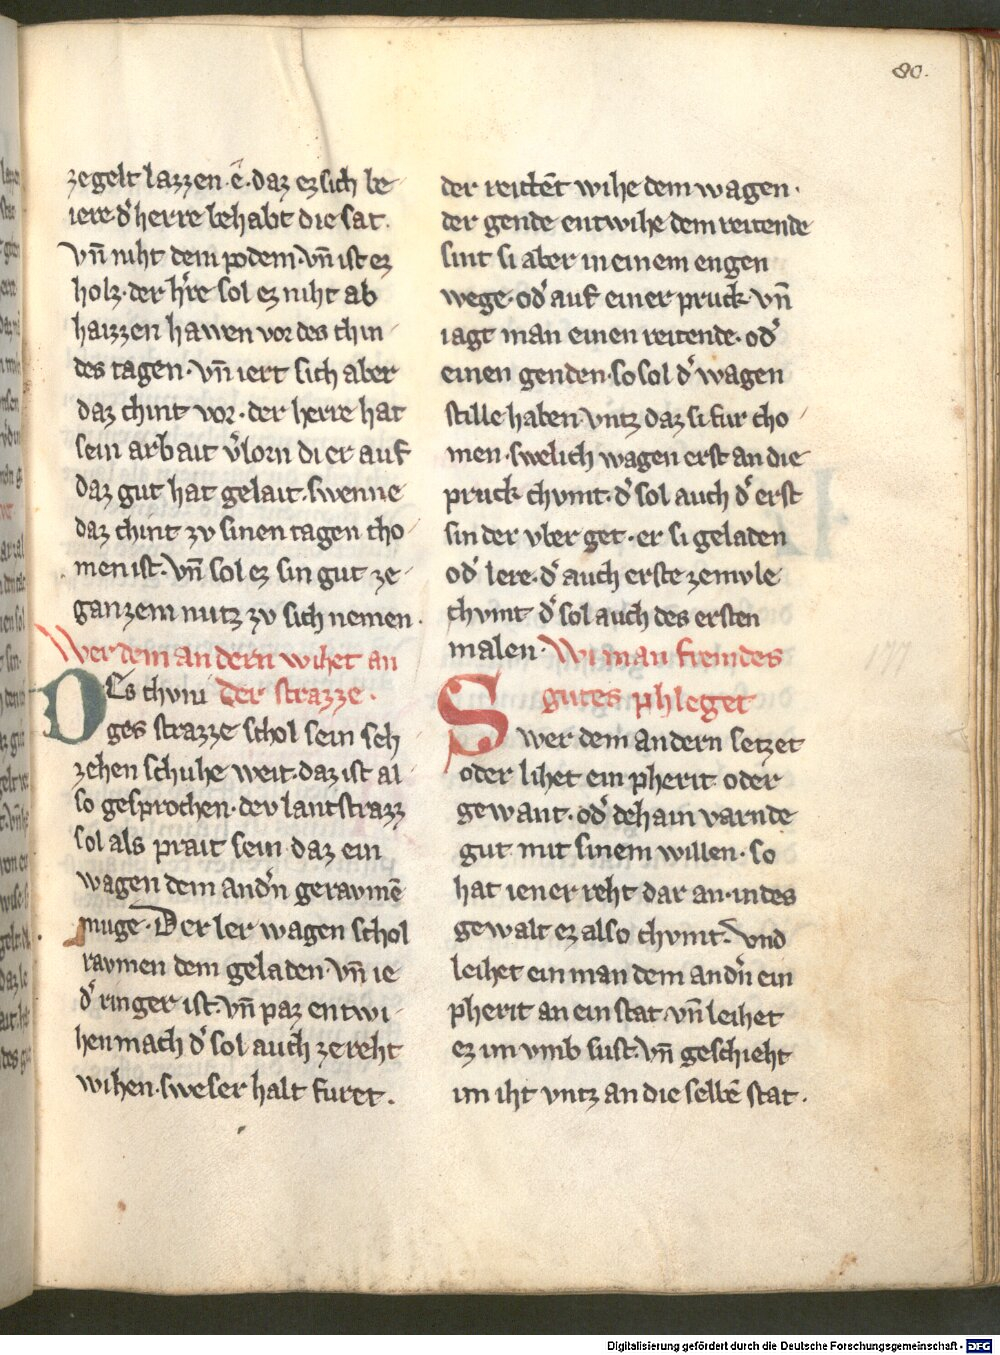 80.
zegelt lazzen · e · daz ez sich be
iere d͛ herre behabt die sat.
vn̄ niht dem podem · vn̄ ist ez
holz · der h͛re sol ez niht ab
haizzen hawen vor des chin
des tagen · vn̄ iert sich aber
daz chint vor · der herre hat
sein arbait v͛lorn di er auf
daz gut hat gelait · swenne
daz chint zv sinen tagen cho
men ist · vn̄ sol ez sin gut ze
ganzem nutz zv sich nemen ·
Wer dem andern wihet an
der strazze ·
DEs chvni
ges strazze schol sein seh
zehen schuhe weit · daz ist al
so gesprochen · dev lantstrazz
sol als prait sein daz ein
wagen dem and͛n geravmē
muge · Der ler wagen schol
ravmen dem geladen · vn̄ ie
d͛ ringer ist · vn̄ paz entwi
hen mach d͛ sol auch ze reht
wihen · sweser halt furet ·
der reitēt wihe dem wagen ·
der gende entwihe dem reitende
sint si aber in einem engen
wege · od͛ auf einer pruck · vn̄
iagt man einen reitende · od͛
einen genden · so sol d͛ wagen
stille haben · vntz daz si fur cho
men · swelich wagen erst an die
pruck chvmt · d͛ sol auch d͛ erst
sin der vber get · er si geladen
od͛ lere · d͛ auch erste ze mvle
chvmt d͛ sol auch des ersten
malen · Wi man fremdes
gutes phleget
Swer dem andern setzet
oder lihet ein pherit oder
gewant · od͛ dehain varnde
gut mit sinem willen · so
hat iener reht dar an · in des
gewalt ez also chvmt · Vnd
leihet ein man dem and͛n ein
pherit an ein stat · vn̄ leihet
ez im vmb sust · vn̄ geschieht
im iht vntz an die selbē stat ·
177
Digitalisierung gefördert durch die Deutsche Forschungsgemeinschaft - DFG